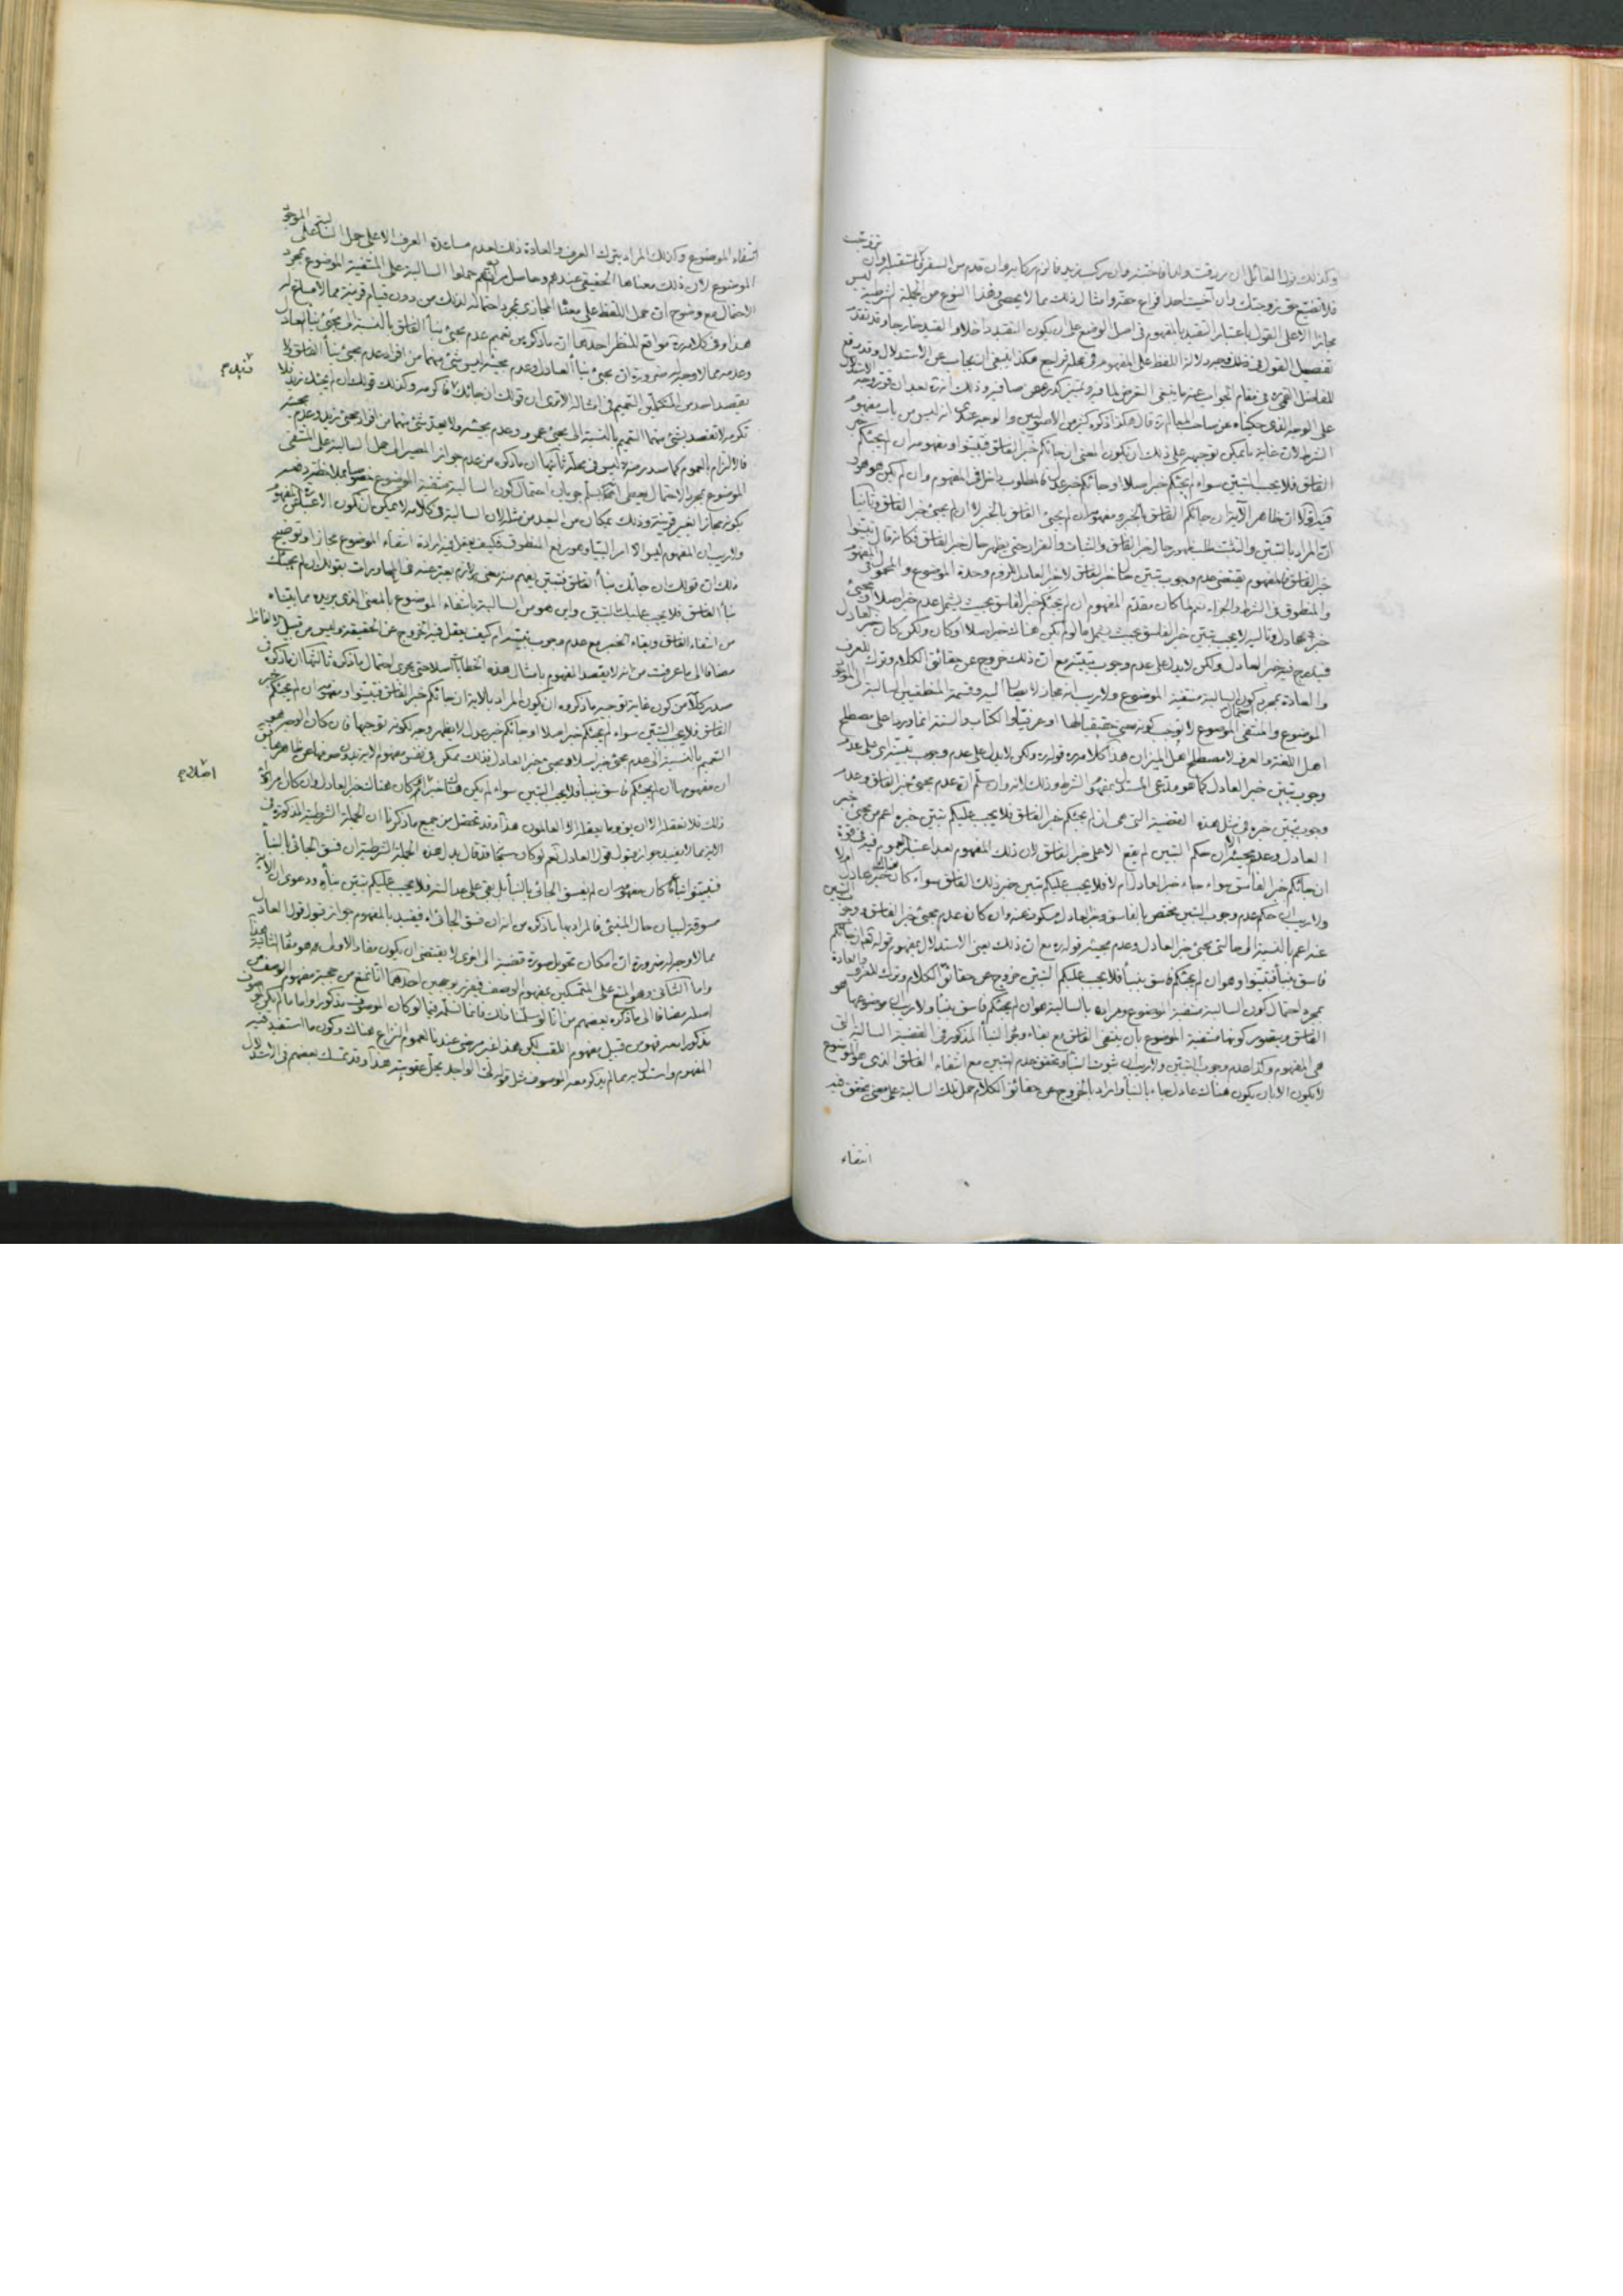 وكذلك قول القائل ان رزقت ولدا فاختنه وان ركب زيد فالزم ركابه وان قدم من السفر فاستقبله وان تزوجت
فلا تضيع حق زوجتك وان آخيت احدا فراع حقه وامثال ذلك مما لا يحصى وهذا النوع من الجملة الشرطية ليس
مجازا الا على القول باعتبار التقييد بالمفهوم فى اصل الوضع على ان يكون التقييد داخلا والقيد خارجا وقد تقدم
تفصيل القول فى ذلك فى دلالة اللفظ على المفهوم فى محله فراجع هكذا ينبغى ان يجاب عن الاستدلال وقد وقع
للفاضل القمى ره فى مقام الجواب عنه ما ينبغى التعرض لما فيه وذلك انه ره بعد ان قرر وجه الاستدلال
على الوجه الذى حكيناه عن صاحب المعالم ره قال هكذا ذكره كثير من الاصوليين والوجه عندى انه ليس من باب مفهوم
الشرط لان غاية ما يمكن توجيهه على ذلك ان يكون المعنى ان جائكم خبر الفاسق فتبينوا ومفهومه ان لم يجئكم خبر
الفاسق فلا يجب التبين سواء لم يجئكم خبر اصلا او جائكم خبر عدل فالمطلوب داخل فى المفهوم وان لم يكن هو هو
فيه اولا ان ظاهر الآية ان جائكم الفاسق بالخبر ومفهومه ان لم يجئ الفاسق بالخبر لا ان لم يجئ خبر الفاسق وثانيا
ان المراد بالتبين والتثبت طلب ظهور حال خبر الفاسق والثبات والقرار حتى يظهر حال خبر الفاسق فكانه قال تبينوا
خبر الفاسق فالمفهوم يقتضى عدم وجوب تبين حال خبر الفاسق لا خبر العادل للزوم وحدة الموضوع والمحمول فى المفهوم
والمنطوق فى الشرط والجزاء نعم لما كان مقدم المفهوم ان لم يجئكم خبر الفاسق بحيث يشمل عدم خبر اصلا او مجئ
خبر عادل وتاليه لا يجب تبين خبر الفاسق بحيث يشمل ما لو لم يكن هناك خبر اصلا او كان ولكن كان خبر العادل
فيندرج فيه خبر العادل ولكن لا يدل على عدم وجوب تبينه مع ان ذلك خروج عن حقائق الكلام وترك للعرف
والعادة بمجرد احتمال كون السالبة منتفية الموضوع ولا ريب انه مجاز لا يصار اليه وقسمة المنطقيين السالبة الى الموجود
الموضوع والمنتفى الموضوع لا يوجب كونه معنى حقيقيا لها او عرفيا والكتاب والسنة انما وردا على مصطلح
اهل اللغة والعرف لا مصطلح اهل الميزان هذا كلامه ره قوله ره ولكن لا يدل على عدم وجوب تبينه اى على عدم
وجوب تبين خبر العادل كما هو مدعى المستدل بمفهوم الشرط وذلك لانه وان سلم ان عدم مجئ خبر الفاسق وعدم
وجوب تبين خبره فى مثل هذه القضية التى هى ان لم يجئكم خبر الفاسق فلا يجب عليكم تبين خبره اعم من مجئ خبر
العادل وعدم مجيئه الا ان حكم التبين لم يقع الا على خبر الفاسق لان ذلك المفهوم بعد اعتبار العموم فيه فى قوة
ان جائكم خبر الفاسق سواء جاء خبر العادل ام لا فلا يجب عليكم تبين خبر ذلك الفاسق سواء كان هناك خبر عادل ام لا
ولا ريب ان حكم عدم وجوب التبين مختص بالفاسق وخبر العادل مسكوت عنه وان كان عدم مجئ خبر الفاسق وعدم وجوب التبين
عنه اعم بالنسبة الى حالتى مجئ خبر العادل وعدم مجيئه قوله ره مع ان ذلك يعنى الاستدلال بمفهوم قوله تعالى ان جائكم
فاسق بنبأ فتبينوا وهو ان لم يجئكم فاسق بنبأ فلا يجب عليكم التبين خروج عن حقائق الكلام وترك للعرف والعادة
بمجرد احتمال كون السالبة منتفية الموضوع ومراده بالسالبة هو ان لم يجئكم فاسق بنبأ ولا ريب ان موضوعها هو
الفاسق ويتصور كونها منتفية الموضوع بان ينتفى الفاسق مع بقاء وقوع النبأ المذكور فى القضية السالبة التى
هى المفهوم وكذا عدم وجوب التبين ولا ريب ان ثبوت النبأ وتحقق عدم التبين مع انتفاء الفاسق الذى هو الموضوع
لا يكون الا بان يكون هناك عادل جاء بالنبأ واراد بالخروج عن حقائق الكلام حمل تلك السالبة على معنى يتحقق فيه
انتفاء
انتفاء الموضوع وكذلك المراد بترك العرف والعادة ذلك لعدم مساعدة العرف الا على حمل السالبة على الموجود
الموضوع لان ذلك معناها الحقيقى عندهم وحاصل مرامه انهم حملوا السالبة على المنتفية الموضوع بمجرد
الاحتمال مع وضوح ان حمل اللفظ على معناه المجازى بمجرد احتماله لذلك من دون قيام قرينة مما لا مساغ له
هذا وفى كلامه ره مواقع للنظر احدها ان ما ذكره من تعميم عدم مجئ نبأ الفاسق بالنسبة الى مجئ نبأ العادل
وعدمه مما لا وجه له ضرورة ان مجئ نبأ العادل وعدم مجيئه ليس شئ منهما من افراد عدم مجئ نبأ الفاسق ولا
يقصد احد من المتكلمين التعميم فى امثاله الا ترى ان قولك ان جائك زيد فاكرمه وكذلك قولك ان لم يجئك زيد فلا
تكرمه لا تقصد بشئ منهما التعميم بالنسبة الى مجئ عمرو وعدم مجيئه ولا يعد شئ منهما من افراد مجئ زيد وعدم مجيئه
فالالتزام بالعموم كما صدر منه ليس فى محله ثانيها ان ما ذكره من عدم جواز المصير الى حمل السالبة على المنتفى
الموضوع بمجرد الاحتمال
يكونه مجازا بغير قرينة وذلك بمكان من البعد من مثله لان السالبة فى كلامه لا يمكن ان تكون الا عبارة عن المفهوم
ولا ريب ان المفهوم ليس الا امرا لبيا وهو رفع المنطوق فكيف يعقل فيه ارادة انتفاء الموضوع مجازا وتوضيح
ذلك ان قولك ان جائك نبأ الفاسق فتبين يفهم منه معنى لازم يعبر عنه فى المحاورات بقولك ان لم يجئك
نبأ الفاسق فلا يجب عليك التبين واين هو من السالبة بانتفاء الموضوع بالمعنى الذى يريده مما بيناه
من انتفاء الفاسق وبقاء الخبر مع عدم وجوب تبينه ام كيف يعقل فيه الخروج عن الحقيقة وليس من قبيل الالفاظ
مضافا الى ما عرفت من انه لا يقصد المفهوم بامثال هذه الخطابات اصلا حتى يجرى احتمال ما ذكره ثالثها ان ما ذكره فى
صدر كلامه من كون غاية توجيه ما ذكروه ان يكون المراد بالاية ان جائكم خبر الفاسق فتبينوا ومفهومه ان لم يجئكم خبر
الفاسق فلا يجب التبين سواء لم يجئكم خبر اصلا او جائكم خبر عدل لا يظهر وجه لكونه توجيها فان كان الوجه هو
التعميم بالنسبة الى عدم مجئ خبر اصلا ومجئ خبر العادل فذلك ممكن فى نفس مفهوم الاية بدون صرفها عن ظاهرها
ان مفهومها ان لم يجئكم فاسق بنبأ فلا يجب التبين سواء لم يكن هناك خبر ام كان هناك خبر العادل وان كان مراده
ذلك فلا نعقله الا ان يؤ وما يعقلها الا العالمون هذا وقد تحصل من جميع ما ذكرنا ان الجملة الشرطية المذكورة فى
الاية مما لا يفيد جواز قبول قول العادل نعم لو كان سبحانه قد قال بدل هذه الجملة الشرطية ان فسق الجائى بالنبأ
فتبينوا نبأه كان مفهومه ان لم يفسق الجائى بالنبأ بل بقى على عدالته فلا يجب عليكم تبين نبأه ودعوى ان الاية
مسوقة لبيان حال المنبئ فالمراد بها ما ذكره من انه ان فسق الجائى اه فيفيد بالمفهوم جواز قبول قول العادل
مما لا وجه له ضرورة ان امكان تحويل صورة قضية الى اخرى لا يقتضى ان يكون مفاد الاولى هو مفاد الثانية هذا
واما الثانى وهو المنع على المتمسكين بمفهوم الوصف فيقرر بوجهين احدهما انا نمنع من حجية مفهوم الوصف من
اصله مضافا الى ما ذكره بعضهم من انا لو سلمنا ذلك فانما نسلمه فيما لو كان الموصوف مذكورا واما ما لم يكن الموصوف
مذكورا معه فهو من قبيل مفهوم اللقب لكن هذا غير مرضى عندنا لعموم النزاع هناك وكون ما استفيد فيه
المفهوم واستدل به مما لم يذكر معه الموصوف مثل قوله لى الواجد يحل عقوبته هذا وقد تمسك بعضهم فى الاستدلال